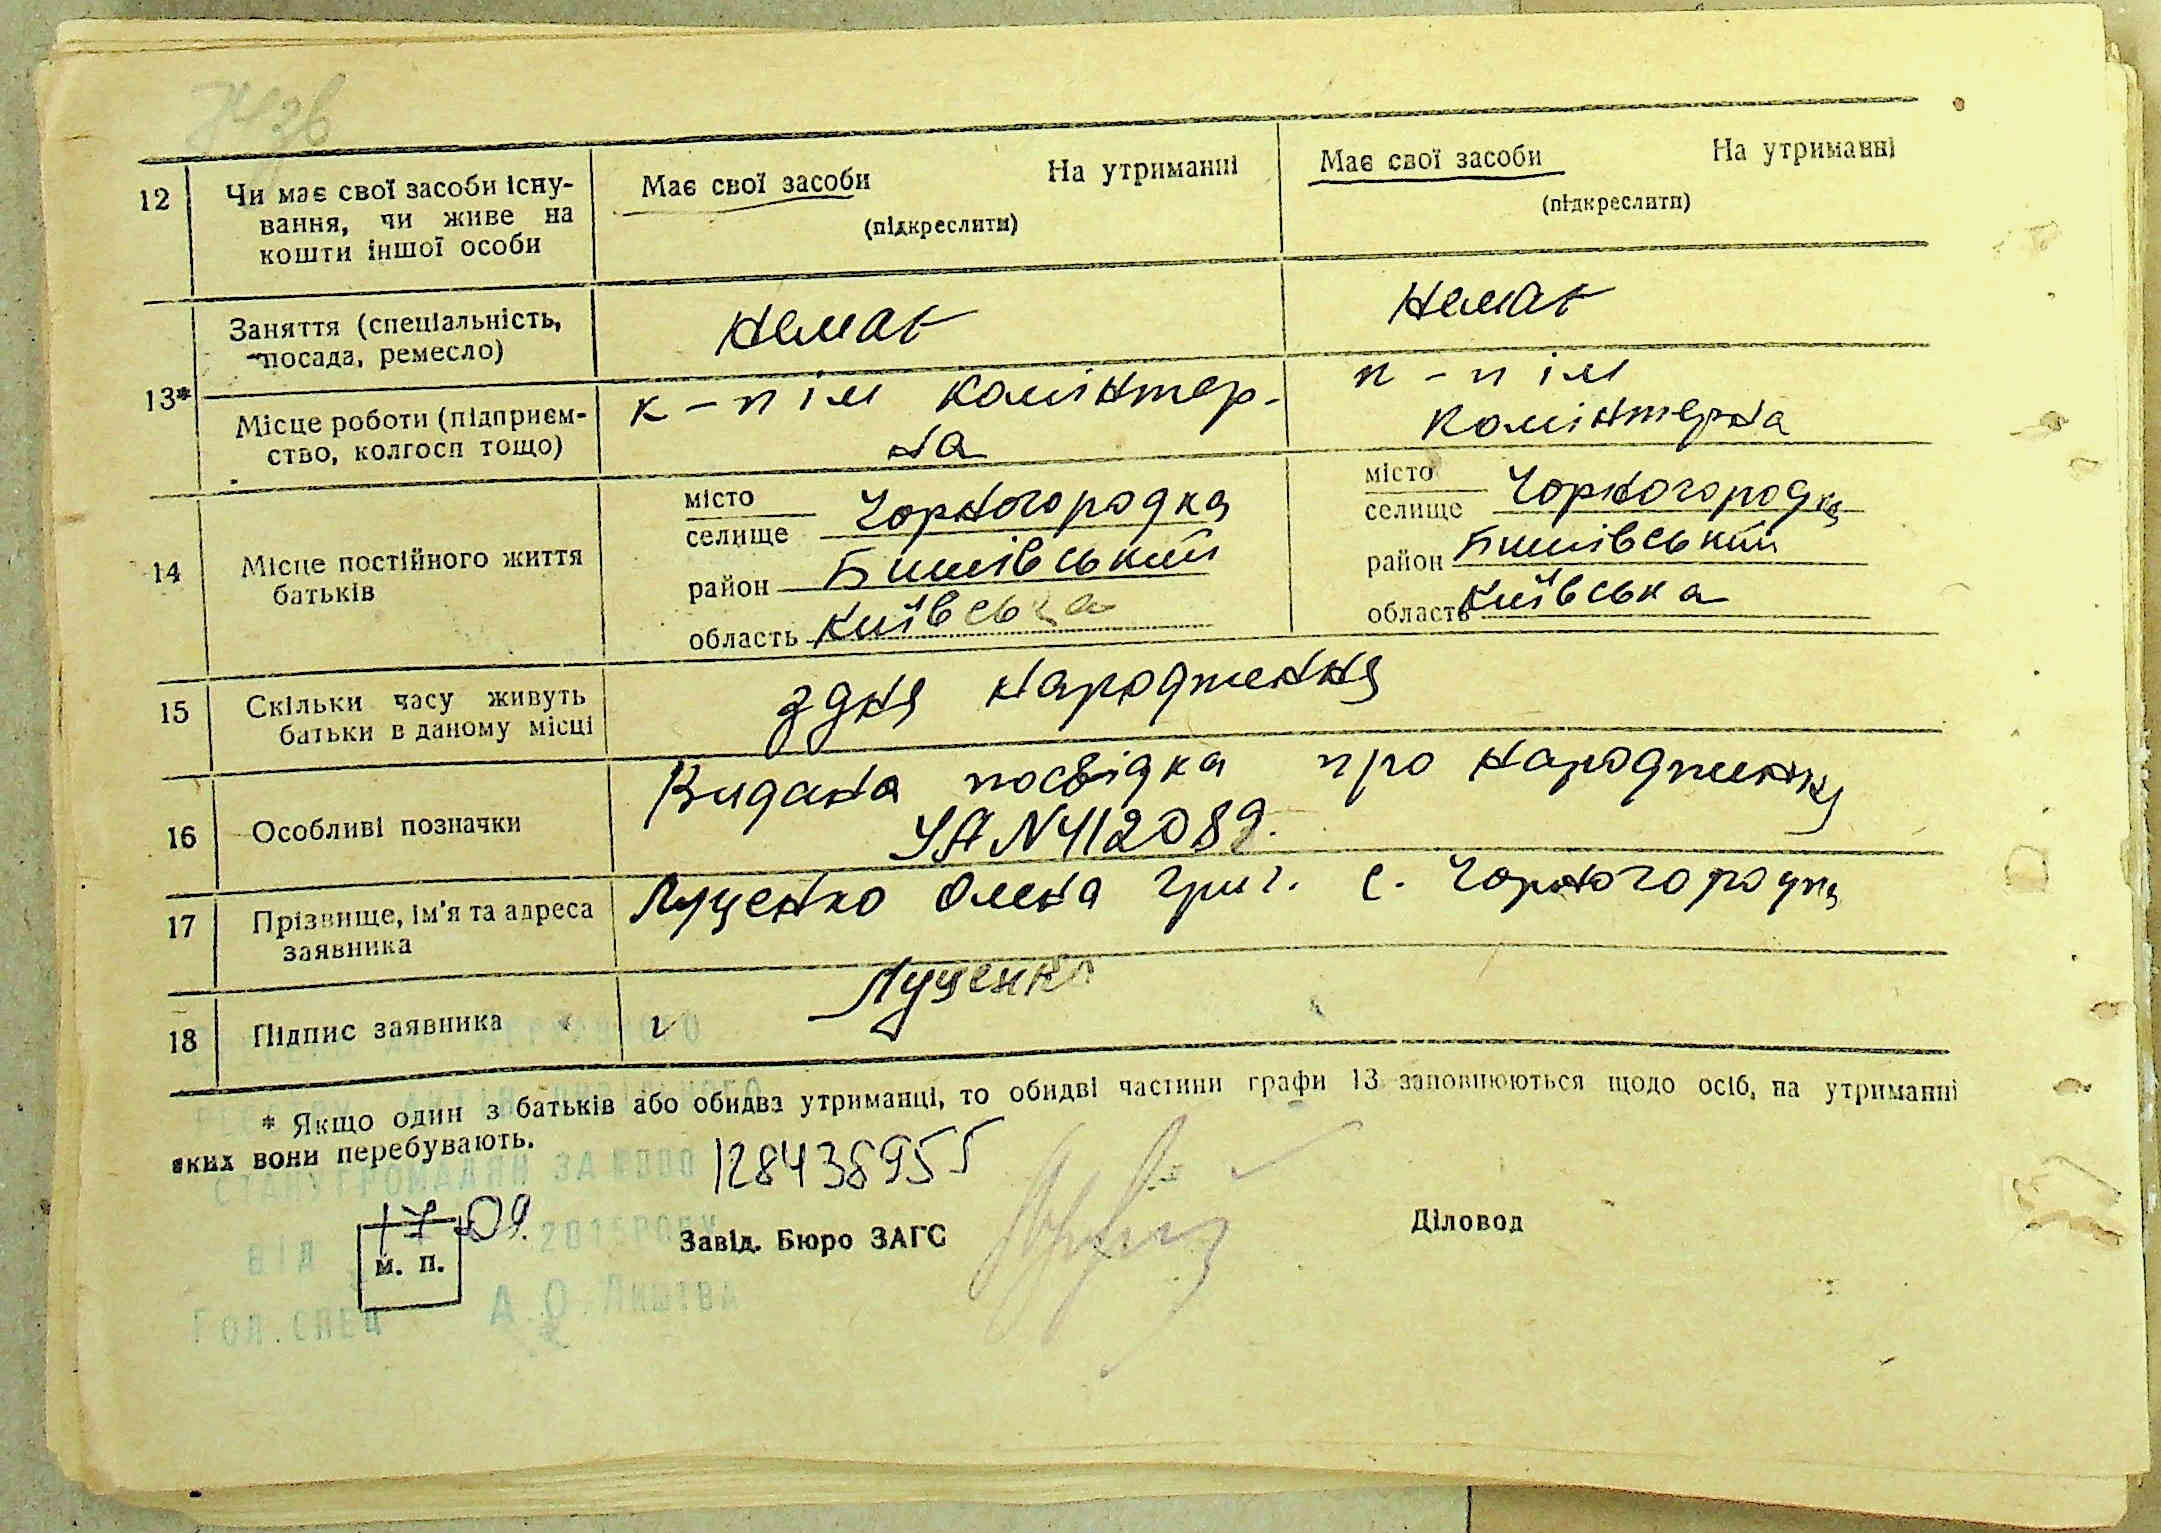 12 Чи має свої засоби існу-
вання, чи живе на
кошти іншої особи
Має свої засоби На утриманні
(підкреслити)
Має свої засоби На утриманні
(підкреслити)
13*
Заняття (спеціальність,
посада, ремесло)
немає
немає
Місце роботи (підприєм-
ство, колгосп тощо)
к-п ім Комінтер-
на
к-п ім
Комінтерна
14 Місце постійного життя
батьків
місто
селище Чорногородка
район Бишівський
область Київська
місто
селище Чорногородка
район Бишівський
область Київська
15 Скільки часу живуть
батьки в даному місці
з дня народження
16 Особливі позначки
Видана посвідка про народження
УА N 412089.
17 Прізвище, ім'я та адреса
заявника
Луценко Олена Григ. с. Чорногородка
18 Підпис заявника
Луценко
* Якщо один з батьків або обидва утриманці, то обидві частини графи 13 заповнюються щодо осіб, на утриманні
яких вони перебувають.
128438955
СТАНУ ГРОМАДЯН ЗА
17.09.
ВІД 2015РОКУ
м. п.
Завід. Бюро ЗАГС
Діловод
ГОЛ.СПЕЦ А.О.Лиштва